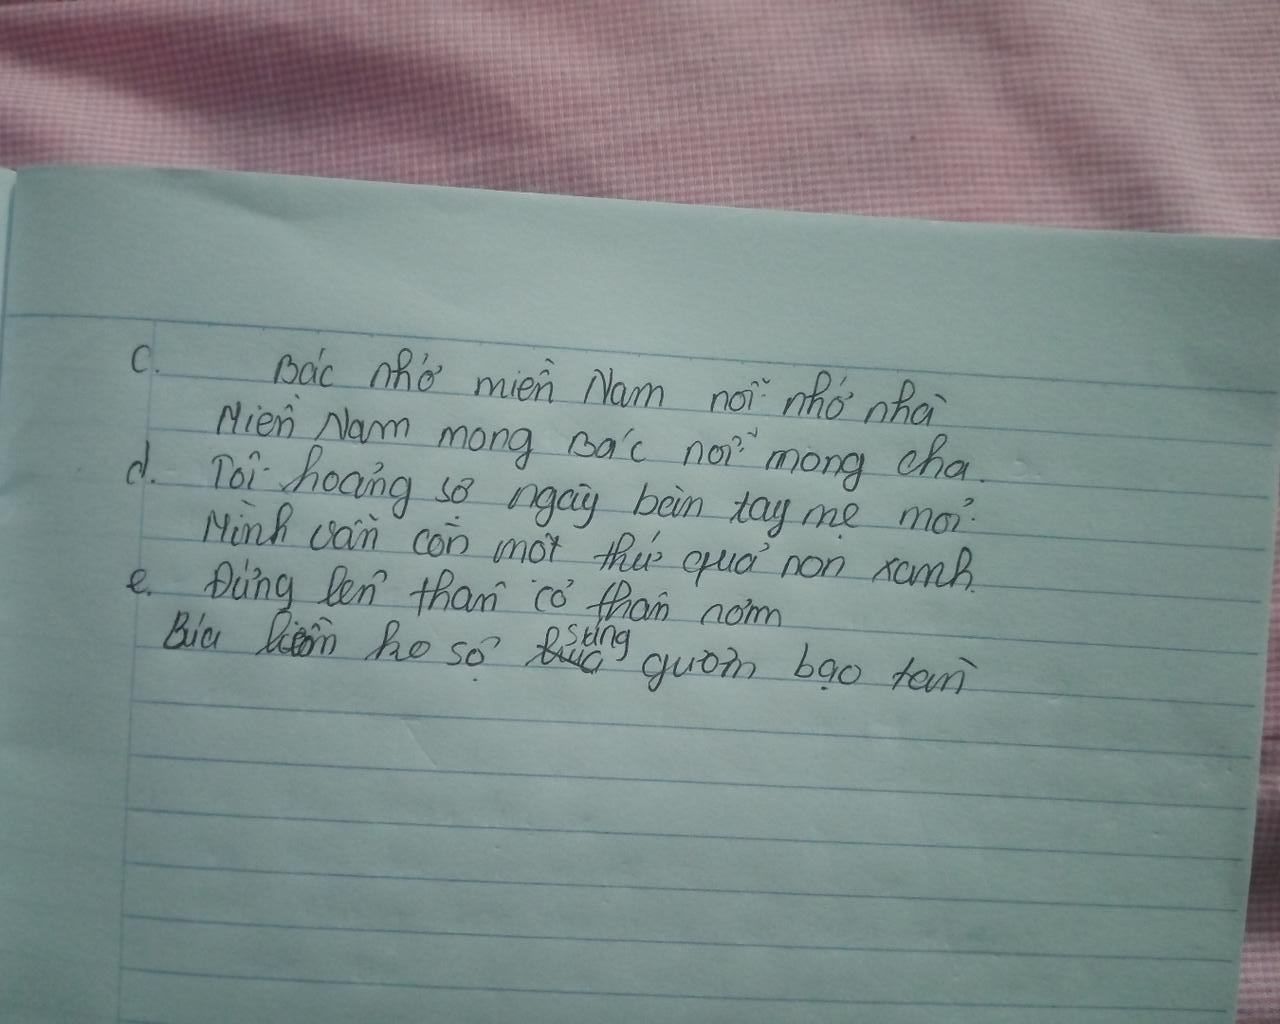 c. Bác nhớ miền Nam nỗi nhớ nhà
Miền Nam mong Bác nỗi mong cha.
d. Tôi hoảng sợ ngày bàn tay mẹ mỏi
Mình vẫn còn một thứ quả non xanh.
e. Đứng lên thân cỏ thân rơm
Búa liềm ko sợ súng gươm bạo tàn